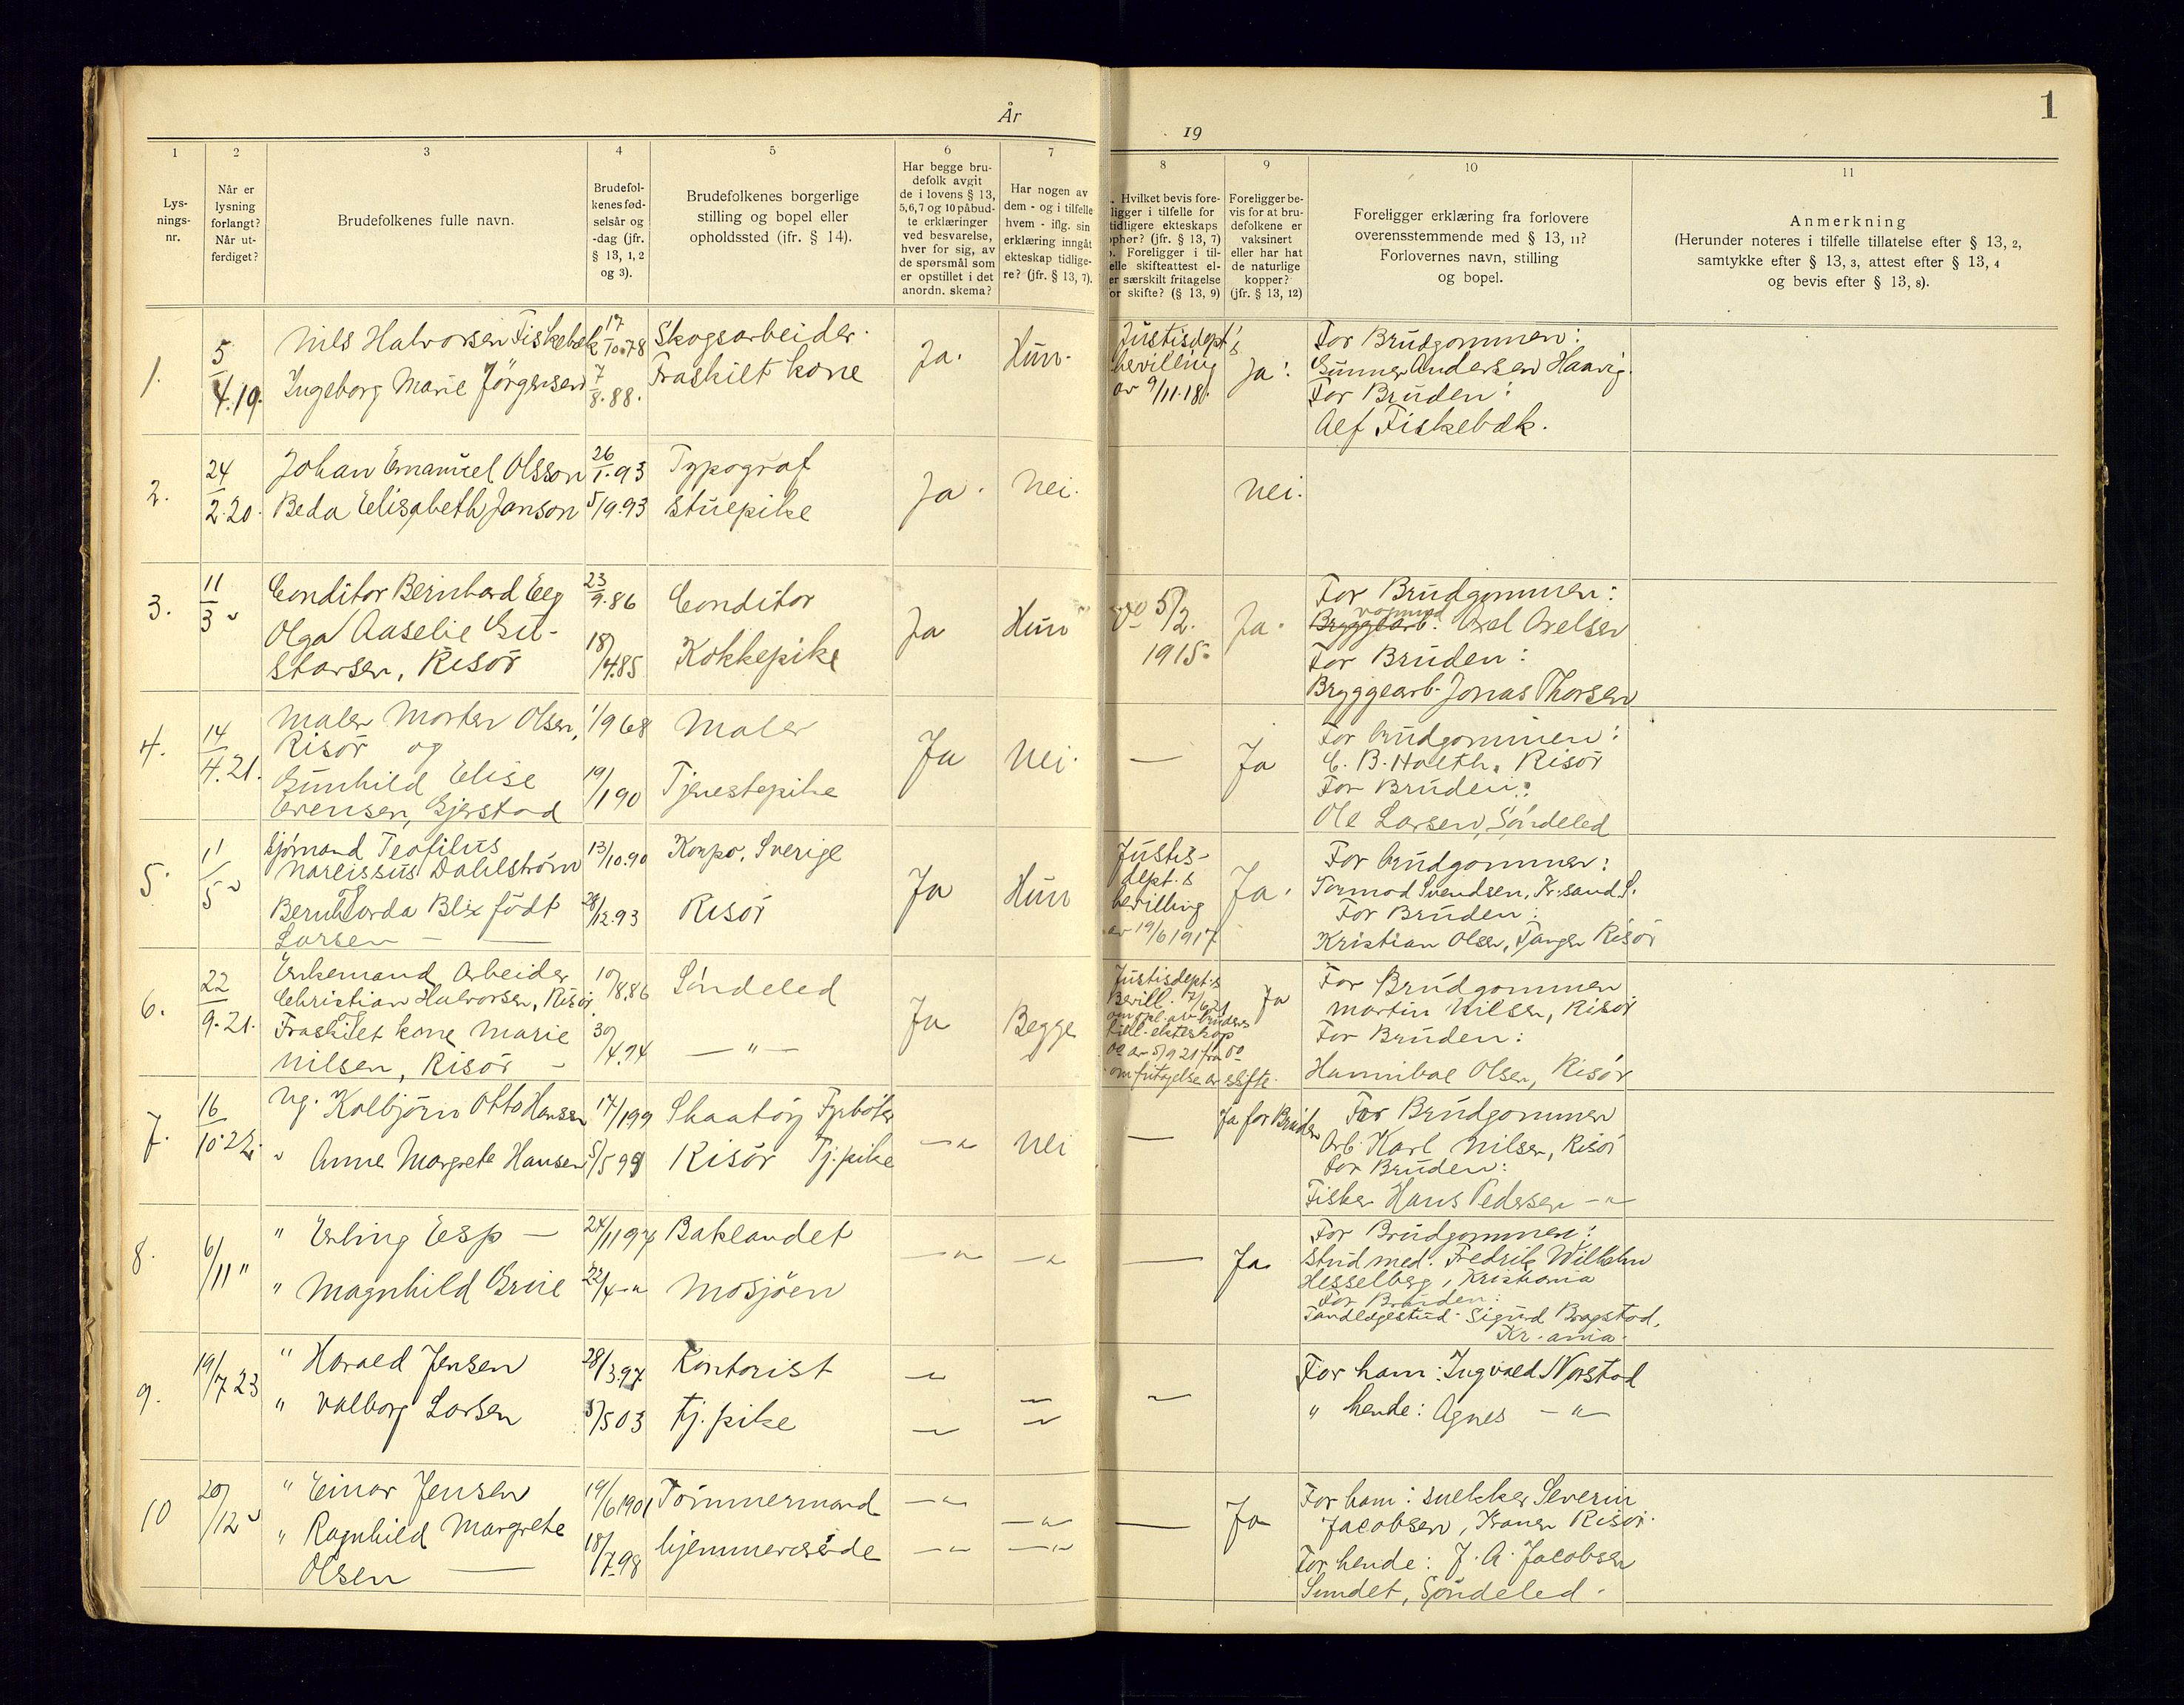 År
19
1
1
2
3
4
5
6
7
8
9
10
11
Lys-
nings-
nr.
Når er
lysning
forlangt?
Når ut-
ferdiget?
Brudefolkenes fulle navn.
Brudefol-
kenes fød-
selsår og
-dag (jfr.
§ 13, 1, 2
og 3).
Brudefolkenes borgerlige
stilling og bopel eller
opholdssted (jfr. § 14).
Har begge bru-
defolk avgit
de i lovens § 13,
5, 6, 7 og 10 påbud-
te erklæringer
ved besvarelse,
hver for sig, av
de spørsmål som
er opstillet i det
anordn. skema?
Har nogen av
dem - og i tilfelle
hvem - iflg. sin
erklæring inngåt
ekteskap tidlige-
re? (jfr. § 13, 7).
Hvilket bevis fore-
ligger i tilfelle for
tidligere ekteskaps
ophør? (jfr. § 13, 7)
Foreligger i til-
elle skifteattest el-
er særskilt fritagelse
or skifte? (§ 13, 9)
Foreligger be-
vis for at bru-
defolkene er
vaksinert
eller har hat
de naturlige
kopper?
(jfr. § 13, 12)
Foreligger erklæring fra forlovere
overensstemmende med § 13, 11?
Forlovernes navn, stilling
og bopel.
Anmerkning
(Herunder noteres i tilfelle tillatelse efter § 13, 2,
samtykke efter § 13, 3, attest efter § 13, 4
og bevis efter § 13, 8).
1.
5/4.19.
Nils Halvorsen Fiskebæk
Ingeborg Marie Jörgensen
17/10.78
7/8.88.
Skogsarbeider.
Fraskilt kone
Ja.
Hun.
Justisdept's
bevilling
av 9/11.18.
Ja.
For Brudgommen:
Gunner Andersen Haavig.
For Bruden:
Alf Fiskebæk.
2.
24/2.20.
Johan Emanuel Olsson
Beda Elisabeth Janson
26/1.93
5/9.93
Typograf
Stuepike
Ja.
Nei.
Nei.
3.
11/3 "
Conditor Bernhard Eeg
Olga Aaselie Gu-
stavsen, Risör
23/9.86
18/4.85
Conditor
Kokkepike
Ja
Hun
do 5/2.
1915.
Ja.
For Brudgommen:
Bryggearb. vognmd Axel Axelsen
For Bruden:
Bryggearb. Jonas Thorsen
4.
14/4.21.
Maler Morten Olsen,
Risör og
Gunhild Elise
Evensen, Gjerstad
1/9 68
19/1 90
Maler
Tjenestepike
Ja
Nei.
—
Ja
For Brudgommen:
C. B. Holth, Risör
For Bruden:
Ole Larsen, Söndeled
5.
11/5 "
Sjömand Teofilus
Narcissus Dahlström
Bernharda Blix födt
Larsen —
13/10.90
28/12.93
Korpo, Sverige
Risör
Ja
Hun
Justis-
dept.s
bevilling
av 19/6 1917
Ja.
For Brudgommen:
Tormod Svendsen, Kr.sand S.
For Bruden:
Kristian Olsen, Tangen Risör
6.
22/9.21.
Enkemand, Arbeider
Christian Halvorsen, Risör
Fraskilt kone Marie
Nilsen, Risör —
10/8.86
30/4.94
Söndeled
— " —
Ja
Begge
Justisdept.s
Bevill.
om fritagelse av skifte.
Ja
For Brudgommen
Martin Nilsen, Risör
For Bruden:
Hannibal Olsen, Risör
7.
16/10.22.
Ug. Kolbjörn Otto Hansen
" Anne Margrete Hansen
17/1 99
5/5 99
Skaatöy Fyrböter
Risör Tj.pike
— " —
Nei
—
Ja for Bruden
For Brudgommen
Arb. Karl Nilsen, Risör
For Bruden:
Fisker Hans Pedersen — " —
8.
6/11 "
" Erling Esp —
" Magnhild Grue
24/11 97
22/4 — "
Baklandet
Mosjöen
— " —
— " —
—
Ja.
For Brudgommen:
Stud med. Fredrik Wilhelm
Hesselberg, Kristiania
For Bruden:
Tandlægestud. Sigurd Bragstad,
Kr.ania.
9.
19/7 23
" Harald Jensen
" Valborg Larsen
28/3.97
3/5 03
Kontorist
Tj. pike
— " —
— " —
— " —
For ham: Ingvald Norstad
" hende: Agnes — " —
10
20/12 "
" Einar Jensen
" Ragnhild Margrete
Olsen —
19/6 1901
18/7.98
Tömmermand
hjemmeværende
— " —
— " —
—
Ja
For ham: snekker Severin
Jacobsen, Kranen Risör.
For hende: J. A. Jacobsen
Sundet, Söndeled.